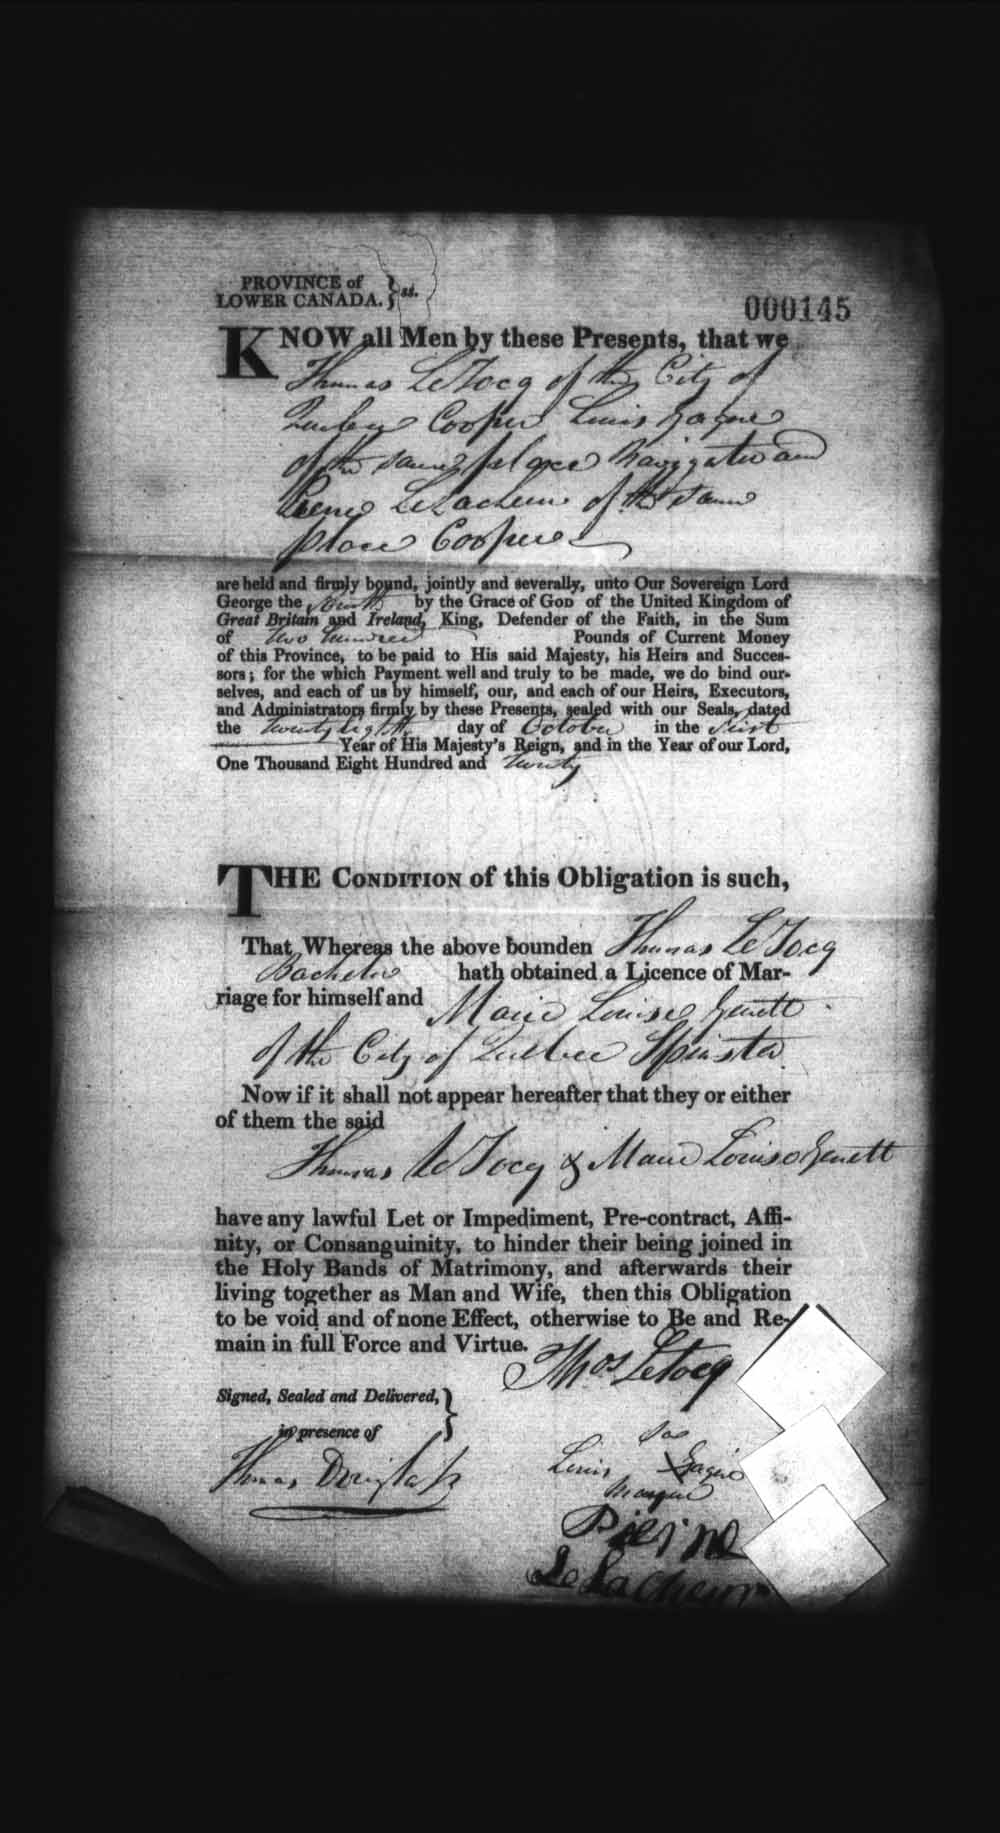 PROVINCE of
LOWER CANADA. } ss.
000145
KNOW all Men by these Presents, that we
Thomas LeTocq of the City of
Quebec Cooper Louis Gagné
of the same place Navigator and
Pierre LeLacheur of the same
place Cooper
are held and firmly bound, jointly and severally, unto Our Sovereign Lord
George the fourth by the Grace of GOD of the United Kingdom of
Great Britain and Ireland, King, Defender of the Faith, in the Sum
of Two hundred Pounds of Current Money
of this Province, to be paid to His said Majesty, his Heirs and Succes-
sors; for the which Payment well and truly to be made, we do bind our-
selves, and each of us by himself, our, and each of our Heirs, Executors,
and Administrators firmly by these Presents, sealed with our Seals, dated
the twenty eighth day of October in the First
Year of His Majesty's Reign, and in the Year of our Lord,
One Thousand Eight Hundred and Twenty
THE CONDITION of this Obligation is such,
That Whereas the above bounden Thomas LeTocq
Bachelor hath obtained a Licence of Mar-
riage for himself and Marie Louise Genett
of the City of Quebec Spinster
Now if it shall not appear hereafter that they or either
of them the said
Thomas LeTocq & Marie Louise Genett
have any lawful Let or Impediment, Pre-contract, Affi-
nity, or Consanguinity, to hinder their being joined in
the Holy Bands of Matrimony, and afterwards their
living together as Man and Wife, then this Obligation
to be void and of none Effect, otherwise to Be and Re-
main in full Force and Virtue.
Thos Letocq
Signed, Sealed and Delivered, }
in presence of
Thomas Douglass
sa
Louis X Gagné
marque
Pierre
LeLacheur